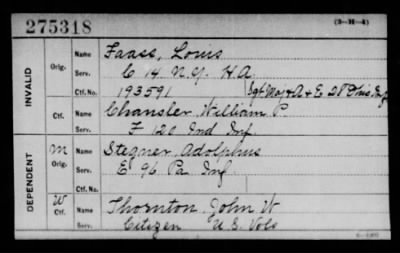 275318
(3—H—4)
INVALID
Orig.
Name Faass, Louis
Serv. C 14 N.Y. H.A.
Ctf. No. 193591 Sgt Maj & A & E 28 Ohio Inf
Ctf.
Name Chansler, William P.
Serv. F 120 Ind Inf.
DEPENDENT
M Orig.
Name Stegner, Adolphus
Serv. E 96 Pa Inf
Ctf. No.
W Ctf.
Name Thornton, John W
Serv. Citizen U S Vols